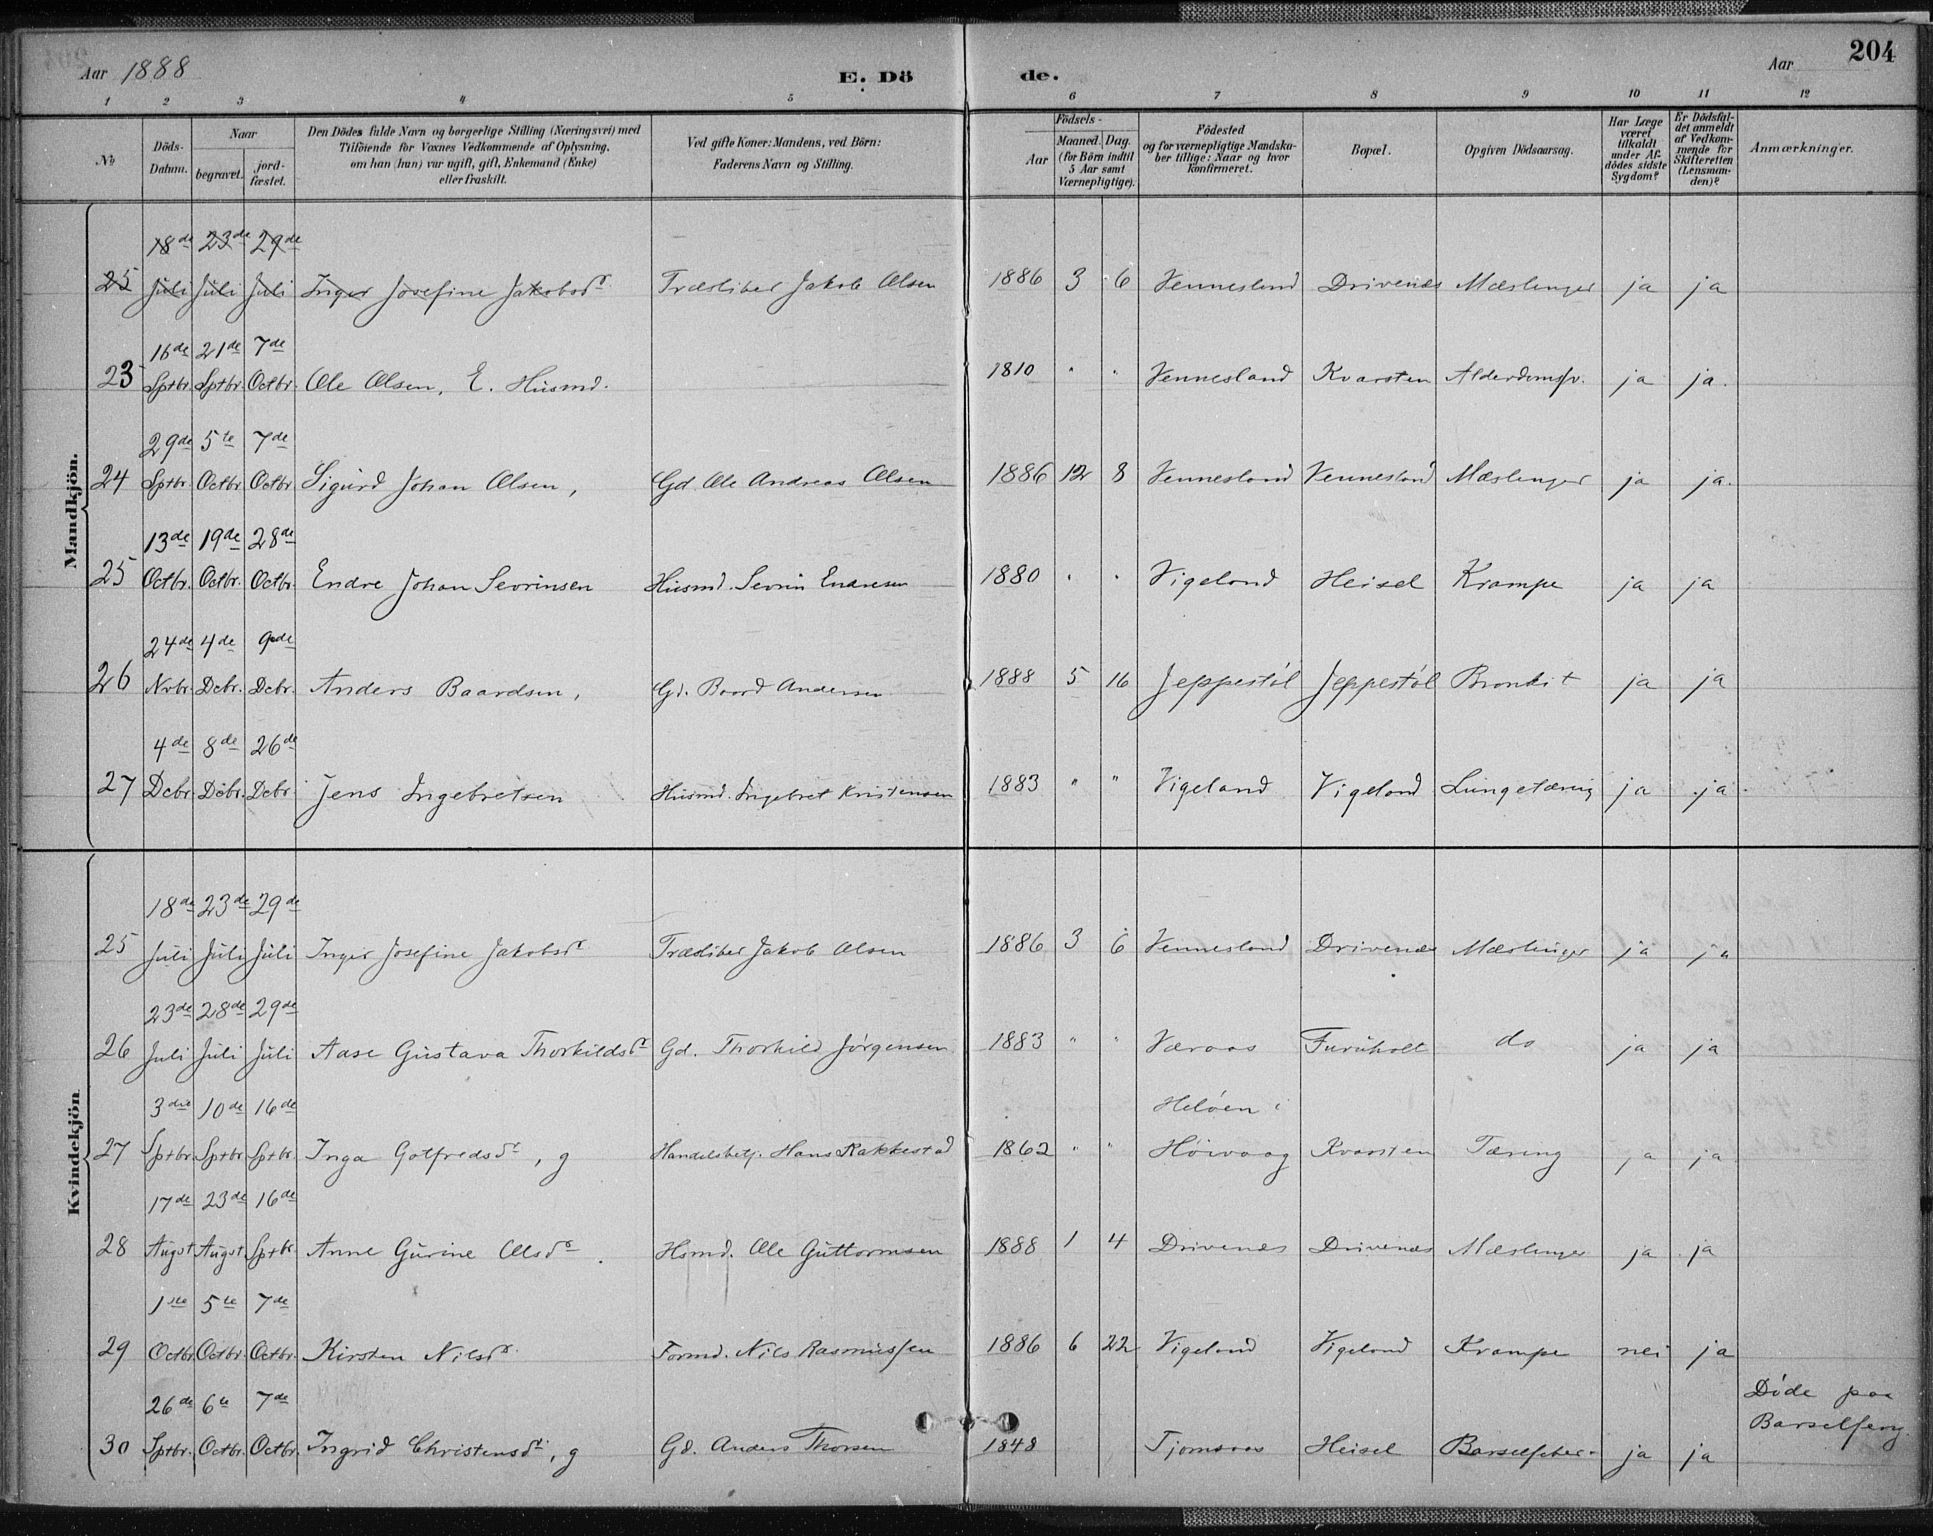 Aar 1888 E. Dö de. Aar 204
1 2 3 4 5 6 7 8 9 10 11 12
No
Döds-Datum.
Naar
begravet.
jord-fæstet.
Den Dödes fulde Navn og borgerlige Stilling (Næringsvei) med
Tilföiende for Voxnes Vedkommende af Oplysning,
om han (hun) var ugift, gift, Enkemand (Enke)
eller fraskilt.
Ved gifte Koner: Mandens, ved Börn:
Faderens Navn og Stilling.
Födsels-
Aar
Maaned. Dag.
(for Börn indtil
5 Aar samt
Værnepligtige).
Födested
og for værnepligtige Mandska-
ber tillige: Naar og hvor
konfirmeret.
Bopæl.
Opgiven Dödsaarsag.
Har Læge
været
tilkaldt
under Af-
dödes sidste
Sygdom?
Er Dödsfal-
det anmeldt
af Vedkom-
mende for
Skifteretten
(Lensman-
den)?
Anmærkninger.
Mandkjön.
18de 23de 29de
25 Juli Juli Juli Inger Josefine Jakobsdr Træsliber Jakob Olsen 1886 3 6 Vennesland Drivenæs Mæslinger ja ja
16de 21de 7de
23 Sptbr. Sptbr. Octbr. Ole Olsen, E. Husmd. 1810 " " Vennesland Kvarsten Alderdomssv. ja ja.
29de 5te 7de
24 Sptbr Octbr Octbr Sigurd Johan Olsen, Gd. Ole Andreas Olsen 1886 12 8 Vennesland Vennesland Mæslinger ja ja.
13de 19de 28de
25 Octbr. Octbr. Octbr. Endre Johan Sevrinsen Husmd. Sevrin Endresen 1880 " " Vigeland Heisel Krampe ja ja
24de 4de 9de
26 Nvbr. Dcbr. Dcbr. Anders Baardsen, Gd. Baard Andersen 1888 5 16 Jeppestøl Jeppestøl Bronkit ja ja
4de 8de 26de
27 Dcbr. Dcbr. Dcbr. Jens Ingebretsen Husmd. Ingebret Kristensen 1883 " " Vigeland Vigeland Lungetæring ja ja.
Kvindekjön
18de 23de 29de
25 Juli Juli Juli Inger Josefine Jakobsdr Træsliber Jakob Olsen 1886 3 6 Vennesland Drivenæs Mæslinger ja ja
23de 28de 29de
26 Juli Juli Juli Aase Gustava Thorkildsdr Gd. Thorkild Jørgensen 1883 " " Væraas Furuholt do ja ja
3die 10de 16de Heløen i
27 Sptbr. Sptbr. Sptbr. Inga Gotfredsdr, g Handelsbetj. Hans Rakkestad 1862 " " Høivaag Kvarsten Tæring ja ja
17de 23de 16de
28 Augst Augst Sptbr. Anne Gurine Olsdr. Hsmd. Ole Guttormsen 1888 1 4 Drivenæs Drivenæs Mæslinger ja ja
1ste 5te 7de
29 Octbr. Octbr. Octbr. Kirsten Nilsdr. Formd. Nils Rasmussen 1886 6 22 Vigeland Vigeland Krampe nei ja
26de 6te 7de Døde paa
Barselseng.
30 Sptbr. Octbr. Octbr. Ingrid Christensdr, g Gd. Anders Thorsen 1848 Tjomsaas Heisel Barselfeber. ja ja